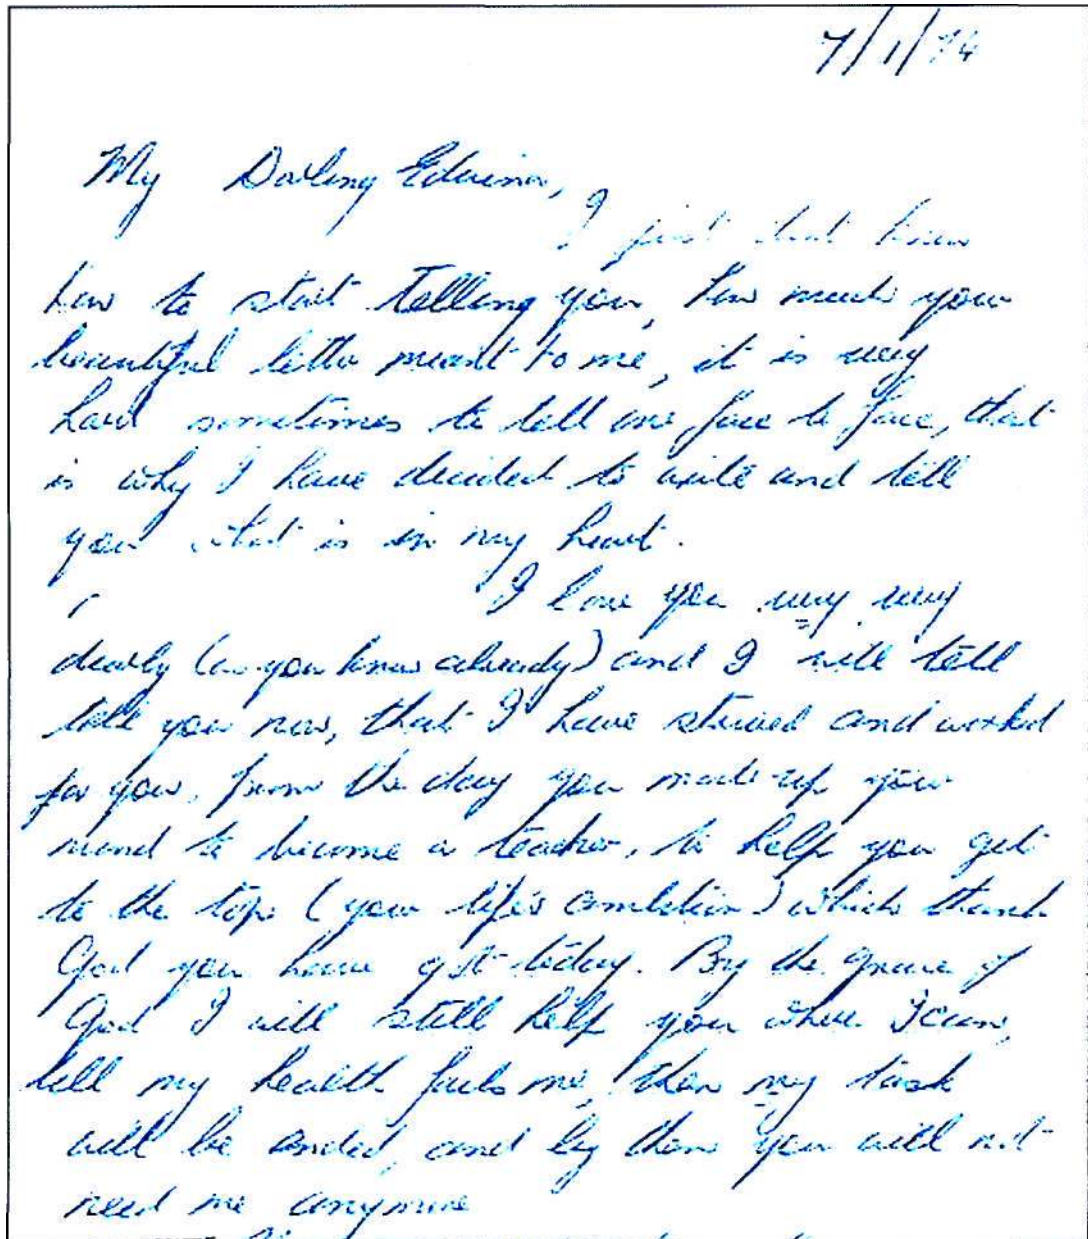 7/1/74
My Darling Edwina,
I just dont know
how to start telling you, how much your
beautiful letter meant to me, it is very
hard sometimes to tell one face to face, that
is why I have decided to write and tell
you what is in my heart.
I love you very very
dearly (as you know already) and I will tell
tell you now, that I have strived and worked
for you, from the day you made up your
mind to become a teacher, to help you get
to the top (your life's ambition) which thank
God you have got today. By the grace of
God I will still help you where I can,
till my health fails me, then my task
will be ended, and by then you will not
need me anymore